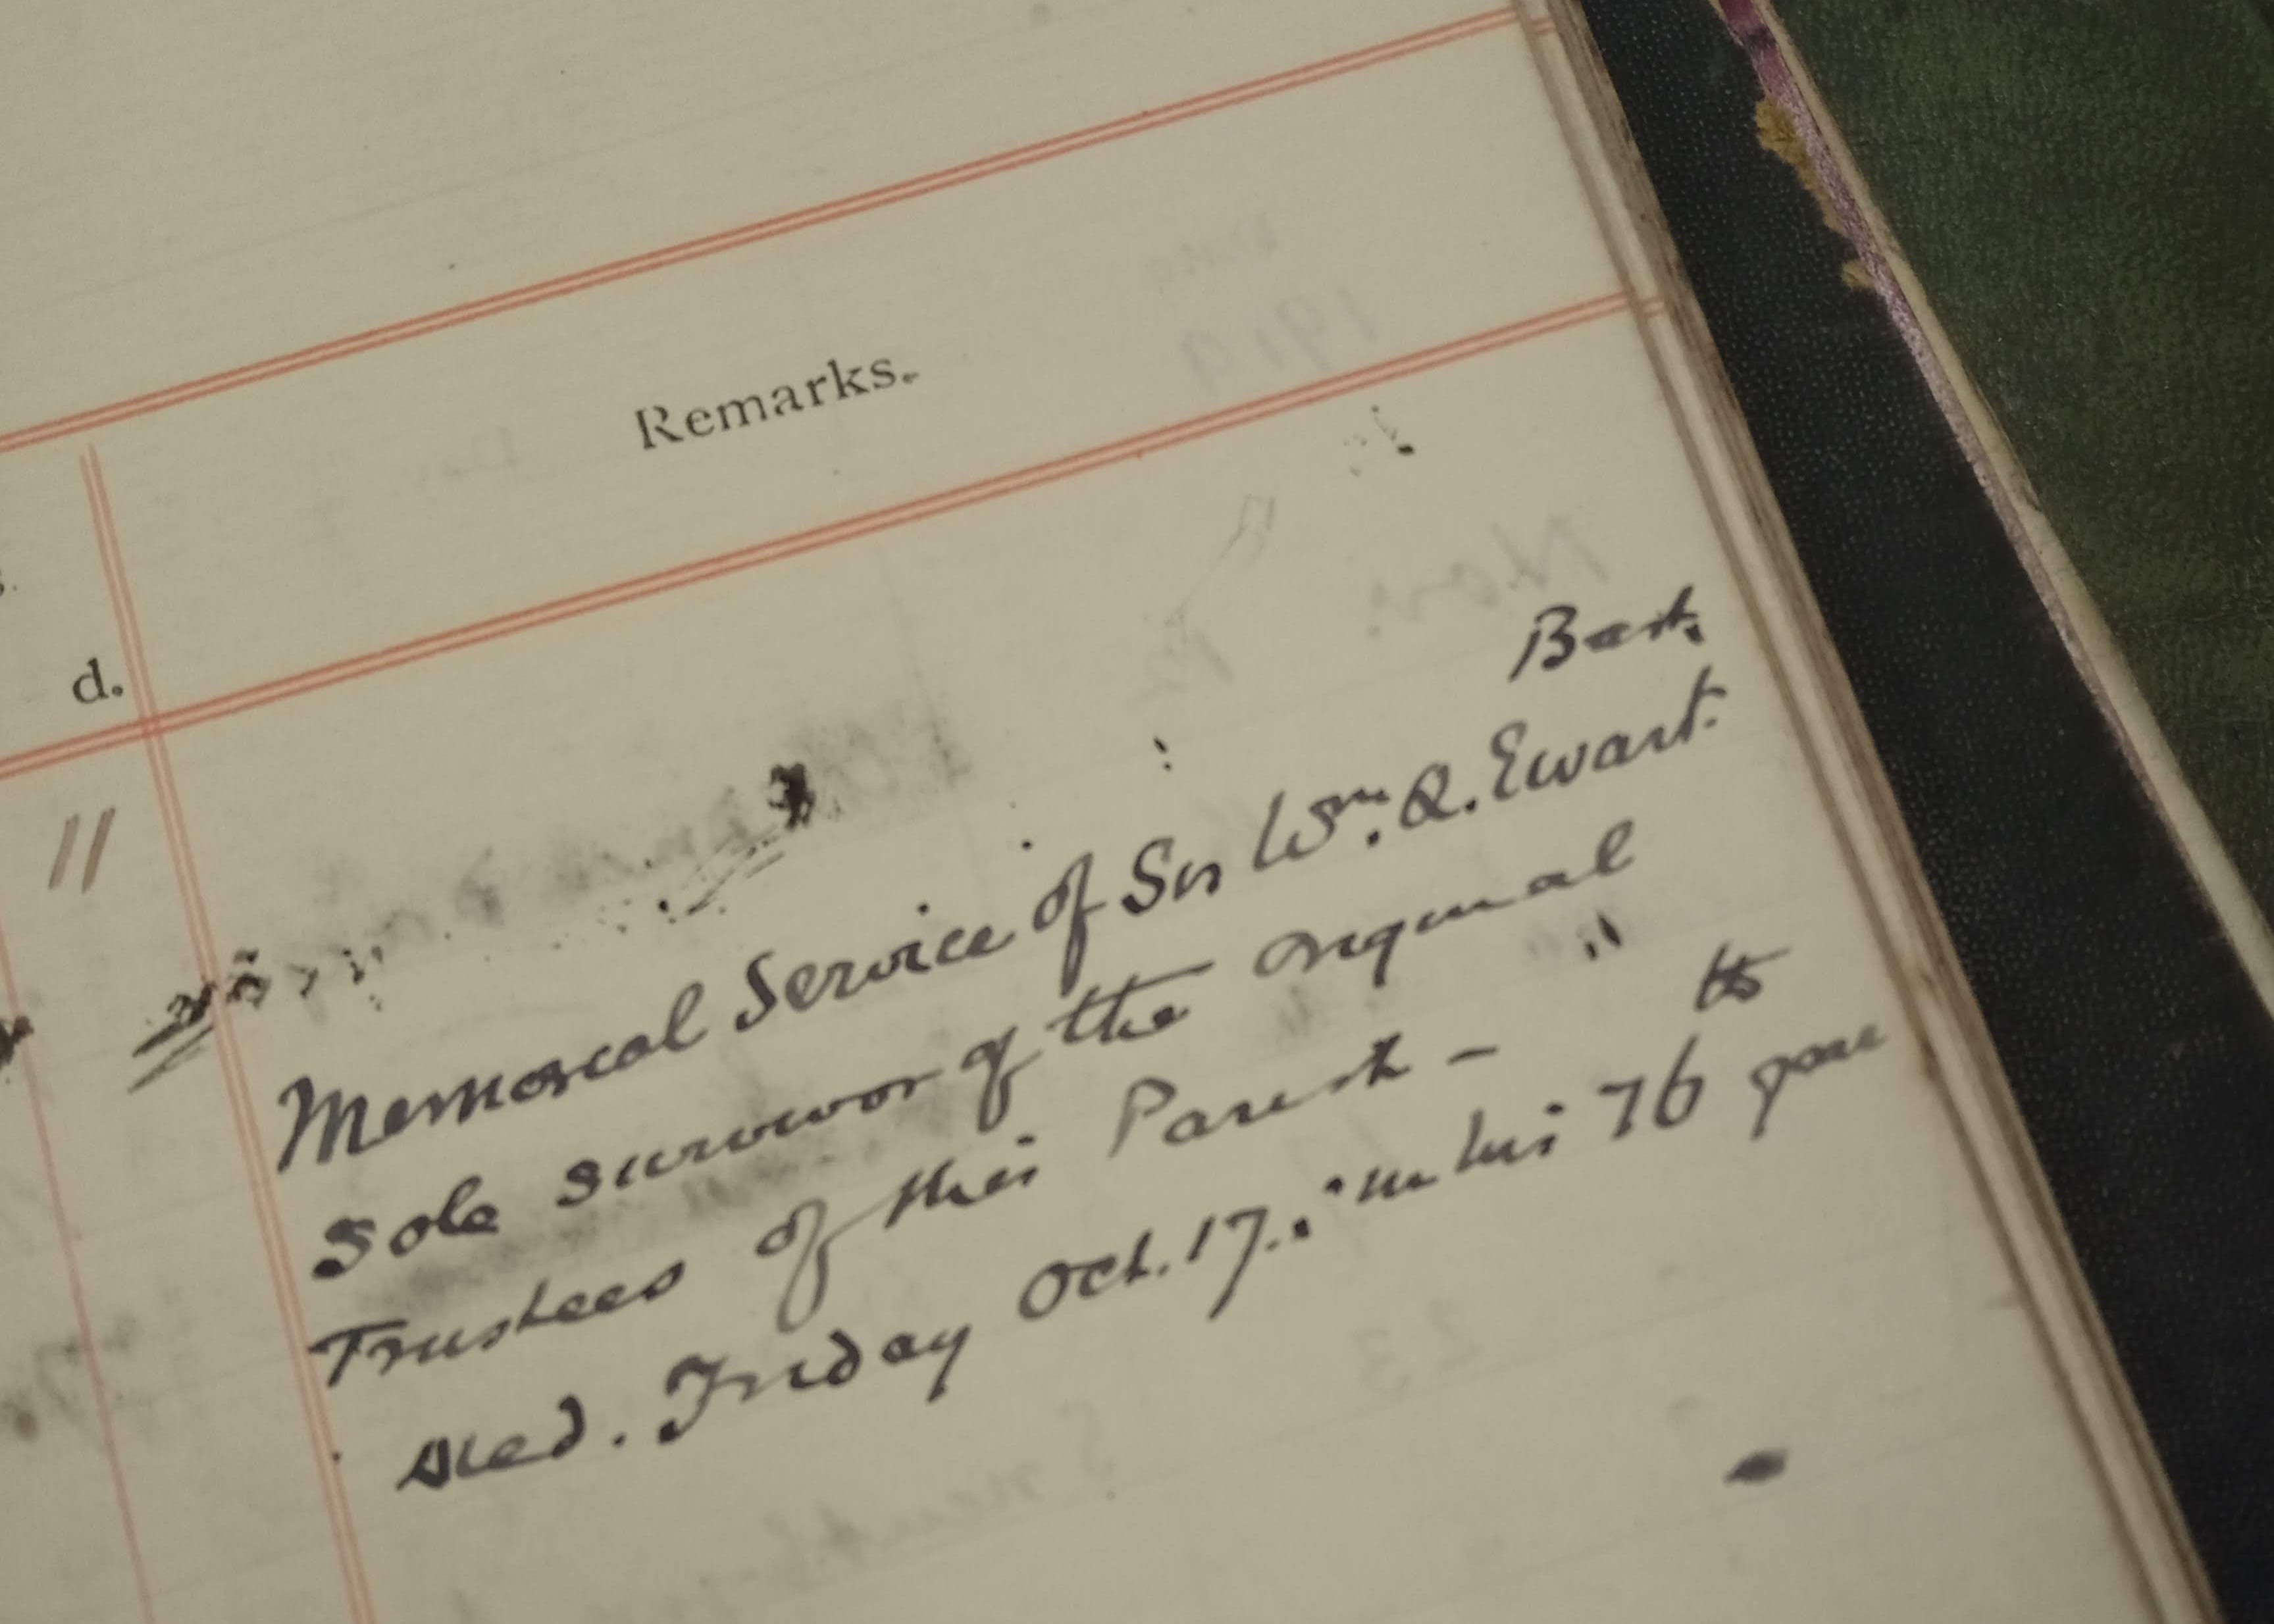 Remarks.
d.
11
Bart.
Memorial Service of Sir Wm. Q. Ewart.
Sole survivor of the original
Trustees of this Parish -
th
Died. Friday Oct. 17. : in his 76 year